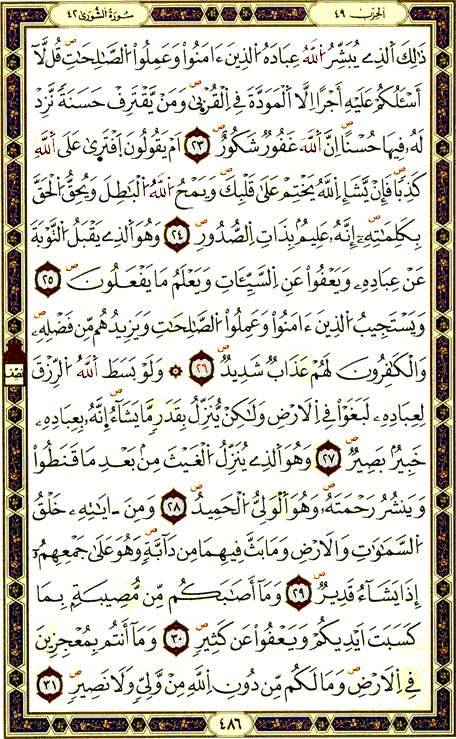 الحزب ٤٩
سورة الشورى ٤٢
ذَٰلِكَ اَ۬لذِے يُبَشِّرُ اُ۬للَّهُ عِبَادَهُ اُ۬لذِينَ ءَامَنُواْ وَعَمِلُواْ اُ۬لصَّٰلِحَٰتِۖ قُل لَّآ
أَسْـَٔلُكُمْ عَلَيْهِ أَجْراً اِلَّا اَ۬لْمَوَدَّةَ فِے اِ۬لْقُرْبَىٰۖ وَمَنْ يَّقْتَرِفْ حَسَنَةٗ نَّزِدْ
لَهُۥ فِيهَا حُسْناًۖ اِنَّ اَ۬للَّهَ غَفُورٞ شَكُورٌۖ ٢٣ اَمْ يَقُولُونَ اَ۪فْتَرَىٰ عَلَى اَ۬للَّهِ
كَذِباٗۖ فَإِنْ يَّشَإِ اِ۬للَّهُ يَخْتِمْ عَلَىٰ قَلْبِكَۖ وَيَمْحُ اُ۬للَّهُ اُ۬لْبَٰطِلَ وَيُحِقُّ اُ۬لْحَقَّ
بِكَلِمَٰتِهِۦٓۖ إِنَّهُۥ عَلِيمُۢ بِذَاتِ اِ۬لصُّدُورِۖ ٢٤ وَهُوَ اَ۬لذِے يَقْبَلُ اُ۬لتَّوْبَةَ
عَنْ عِبَادِهِۦ وَيَعْفُواْ عَنِ اِ۬لسَّيِّـَٔاتِ وَيَعْلَمُ مَا يَفْعَلُونَۖ ٢٥
وَيَسْتَجِيبُ اُ۬لذِينَ ءَامَنُواْ وَعَمِلُواْ اُ۬لصَّٰلِحَٰتِ وَيَزِيدُهُم مِّن فَضْلِهِۦۖ
وَالْكَٰفِرُونَ لَهُمْ عَذَابٞ شَدِيدٞۖ ٢٦ ۞ وَلَوْ بَسَطَ اَ۬للَّهُ اُ۬لرِّزْقَ
نصف
لِعِبَادِهِۦ لَبَغَوْاْ فِے اِ۬لَارْضِ وَلَٰكِنْ يُّنَزِّلُ بِقَدَرٖ مَّا يَشَآءُۖ اِنَّهُۥ بِعِبَادِهِۦ
خَبِيرُۢ بَصِيرٞۖ ٢٧ وَهُوَ اَ۬لذِے يُنَزِّلُ اُ۬لْغَيْثَ مِنۢ بَعْدِ مَا قَنَطُواْ
وَيَنشُرُ رَحْمَتَهُۥۖ وَهُوَ اَ۬لْوَلِيُّ اُ۬لْحَمِيدُۖ ٢٨ وَمِنَ اٰيَٰتِهِۦ خَلْقُ
اُ۬لسَّمَٰوَٰتِ وَالَارْضِ وَمَا بَثَّ فِيهِمَا مِن دَآبَّةٖۖ وَهُوَ عَلَىٰ جَمْعِهِمُۥٓ
إِذَا يَشَآءُ قَدِيرٞۖ ٢٩ وَمَآ أَصَٰبَكُم مِّن مُّصِيبَةِۢ بِمَا
كَسَبَتَ اَيْدِيكُمْ وَيَعْفُواْ عَن كَثِيرٖۖ ٣٠ وَمَآ أَنتُم بِمُعْجِزِينَ
فِے اِ۬لَارْضِۖ وَمَا لَكُم مِّن دُونِ اِ۬للَّهِ مِنْ وَّلِيّٖ وَلَا نَصِيرٖۖ ٣١
٤٨٦